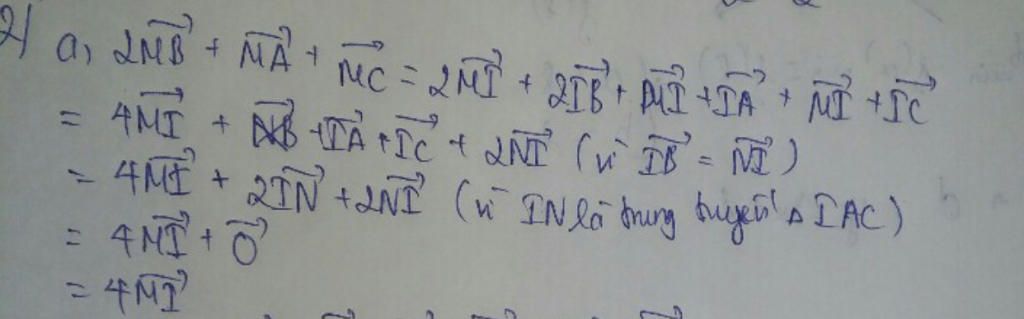 2/ a, 2MB⃗ + MA⃗ + MC⃗ = 2MI⃗ + 2IB⃗ + MI⃗ + IA⃗ + MI⃗ + IC⃗
= 4MI⃗ + IA⃗ + IC⃗ + 2NI⃗ (vì IB⃗ = NI⃗)
= 4MI⃗ + 2IN⃗ + 2NI⃗ (vì IN là trung tuyến Δ IAC)
= 4MI⃗ + O⃗
= 4MI⃗